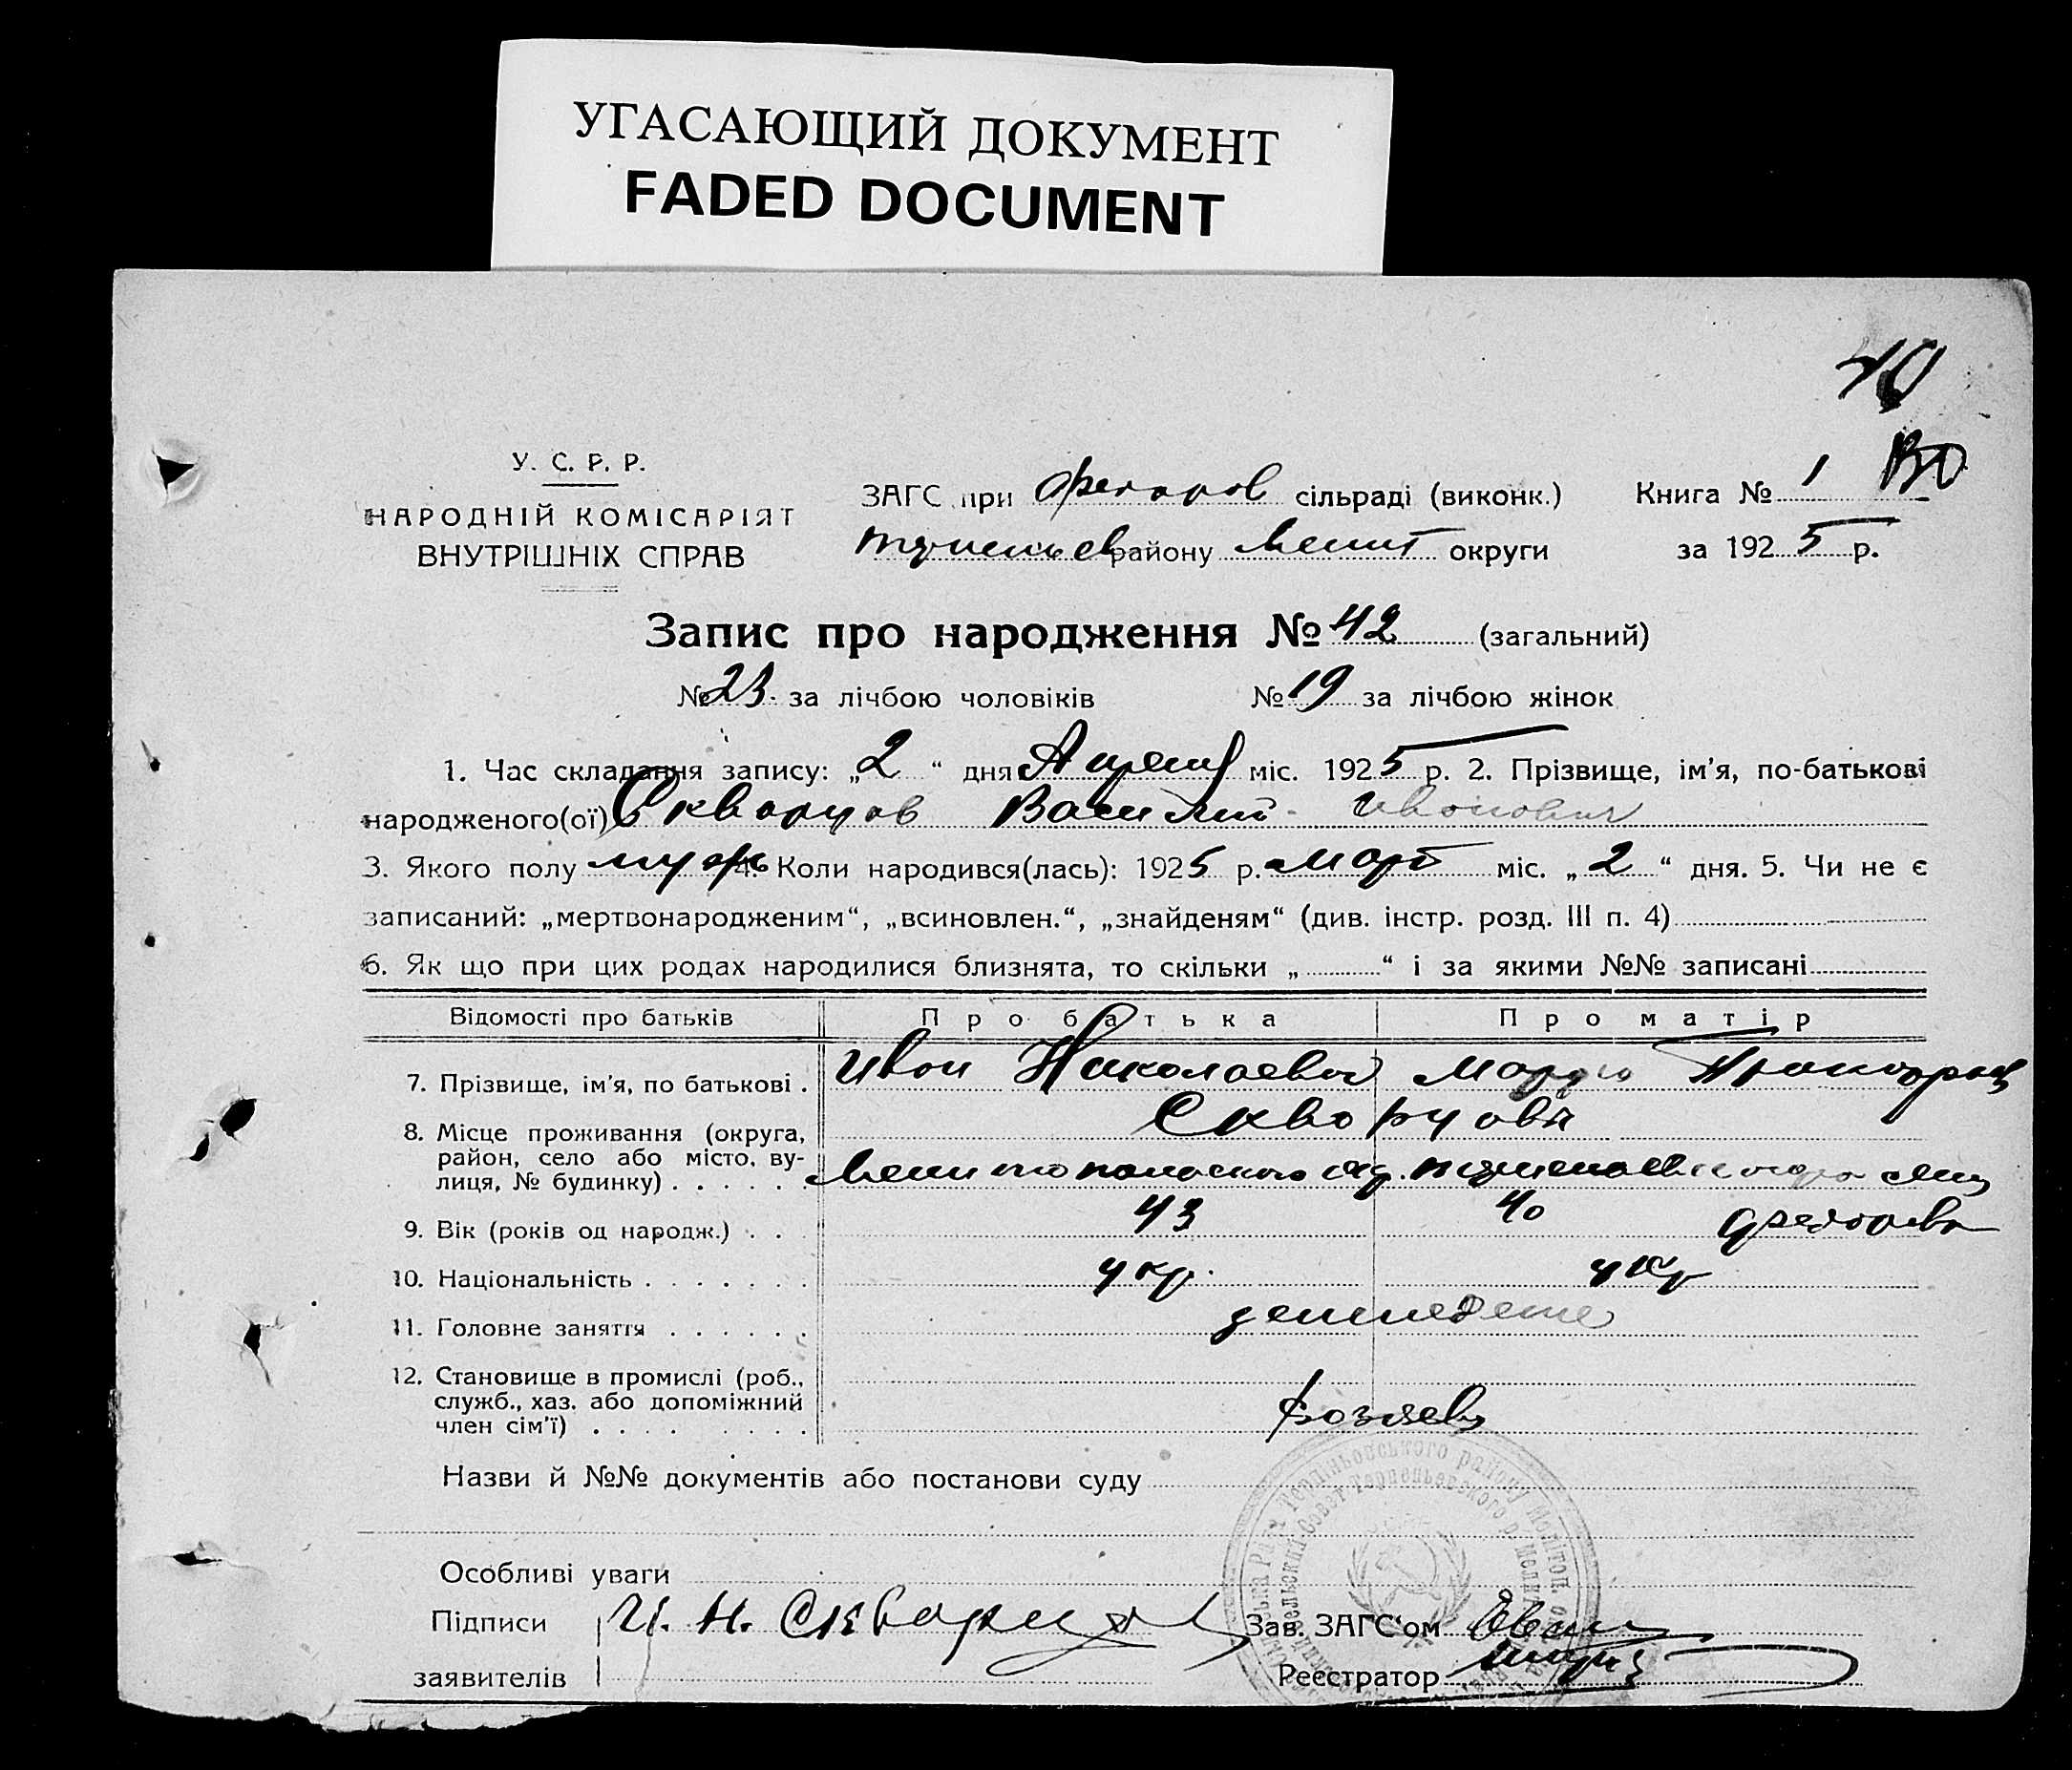 УГАСАЮЩИЙ ДОКУМЕНТ
FADED DOCUMENT
40
У. С. Р. Р.
НАРОДНІЙ КОМІСАРІЯТ
ВНУТРІШНІХ СПРАВ
ЗАГС при Федоров сільраді (виконк.)
району Мелит округи
Книга № 1
за 1925 р.
Запис про народження № 42 (загальний)
№ 23 за лічбою чоловіків № 19 за лічбою жінок
1. Час складання запису: „2“ дня Апреля міс. 1925 р. 2. Прізвище, ім'я, по-батькові
народженого(ої) Скворцов Василий Иванович
3. Якого полу муж 4. Коли народився(лась): 1925 р. март міс. „2“ дня. 5. Чи не є
записаний: „мертвонародженим“, „всиновлен.“, „знайденям“ (див. інстр. розд. III п. 4)
6. Як що при цих родах народилися близнята, то скільки „ “ і за якими №№ записані
Відомості про батьків Про батька Про матір
7. Прізвище, ім'я, по батькові . Иван Николаевич
Скворцовы
8. Місце проживання (округа,
район, село або місто, ву-
лиця, № будинку) . . . . . . Мелитопольского окр.
9. Вік (років од народж.) . . . 43 40 Федоровка
10. Національність . . . . . . . укр. укр
11. Головне заняття . . . . . . земледелие
12. Становище в промислі (роб.,
служб., хаз. або допоміжний
член сім'ї) . . . . . . . .
Назви й №№ документів або постанови суду
Особливі уваги
Підписи И. Н. Скворцов Зав. ЗАГС'ом
заявителів Реєстратор